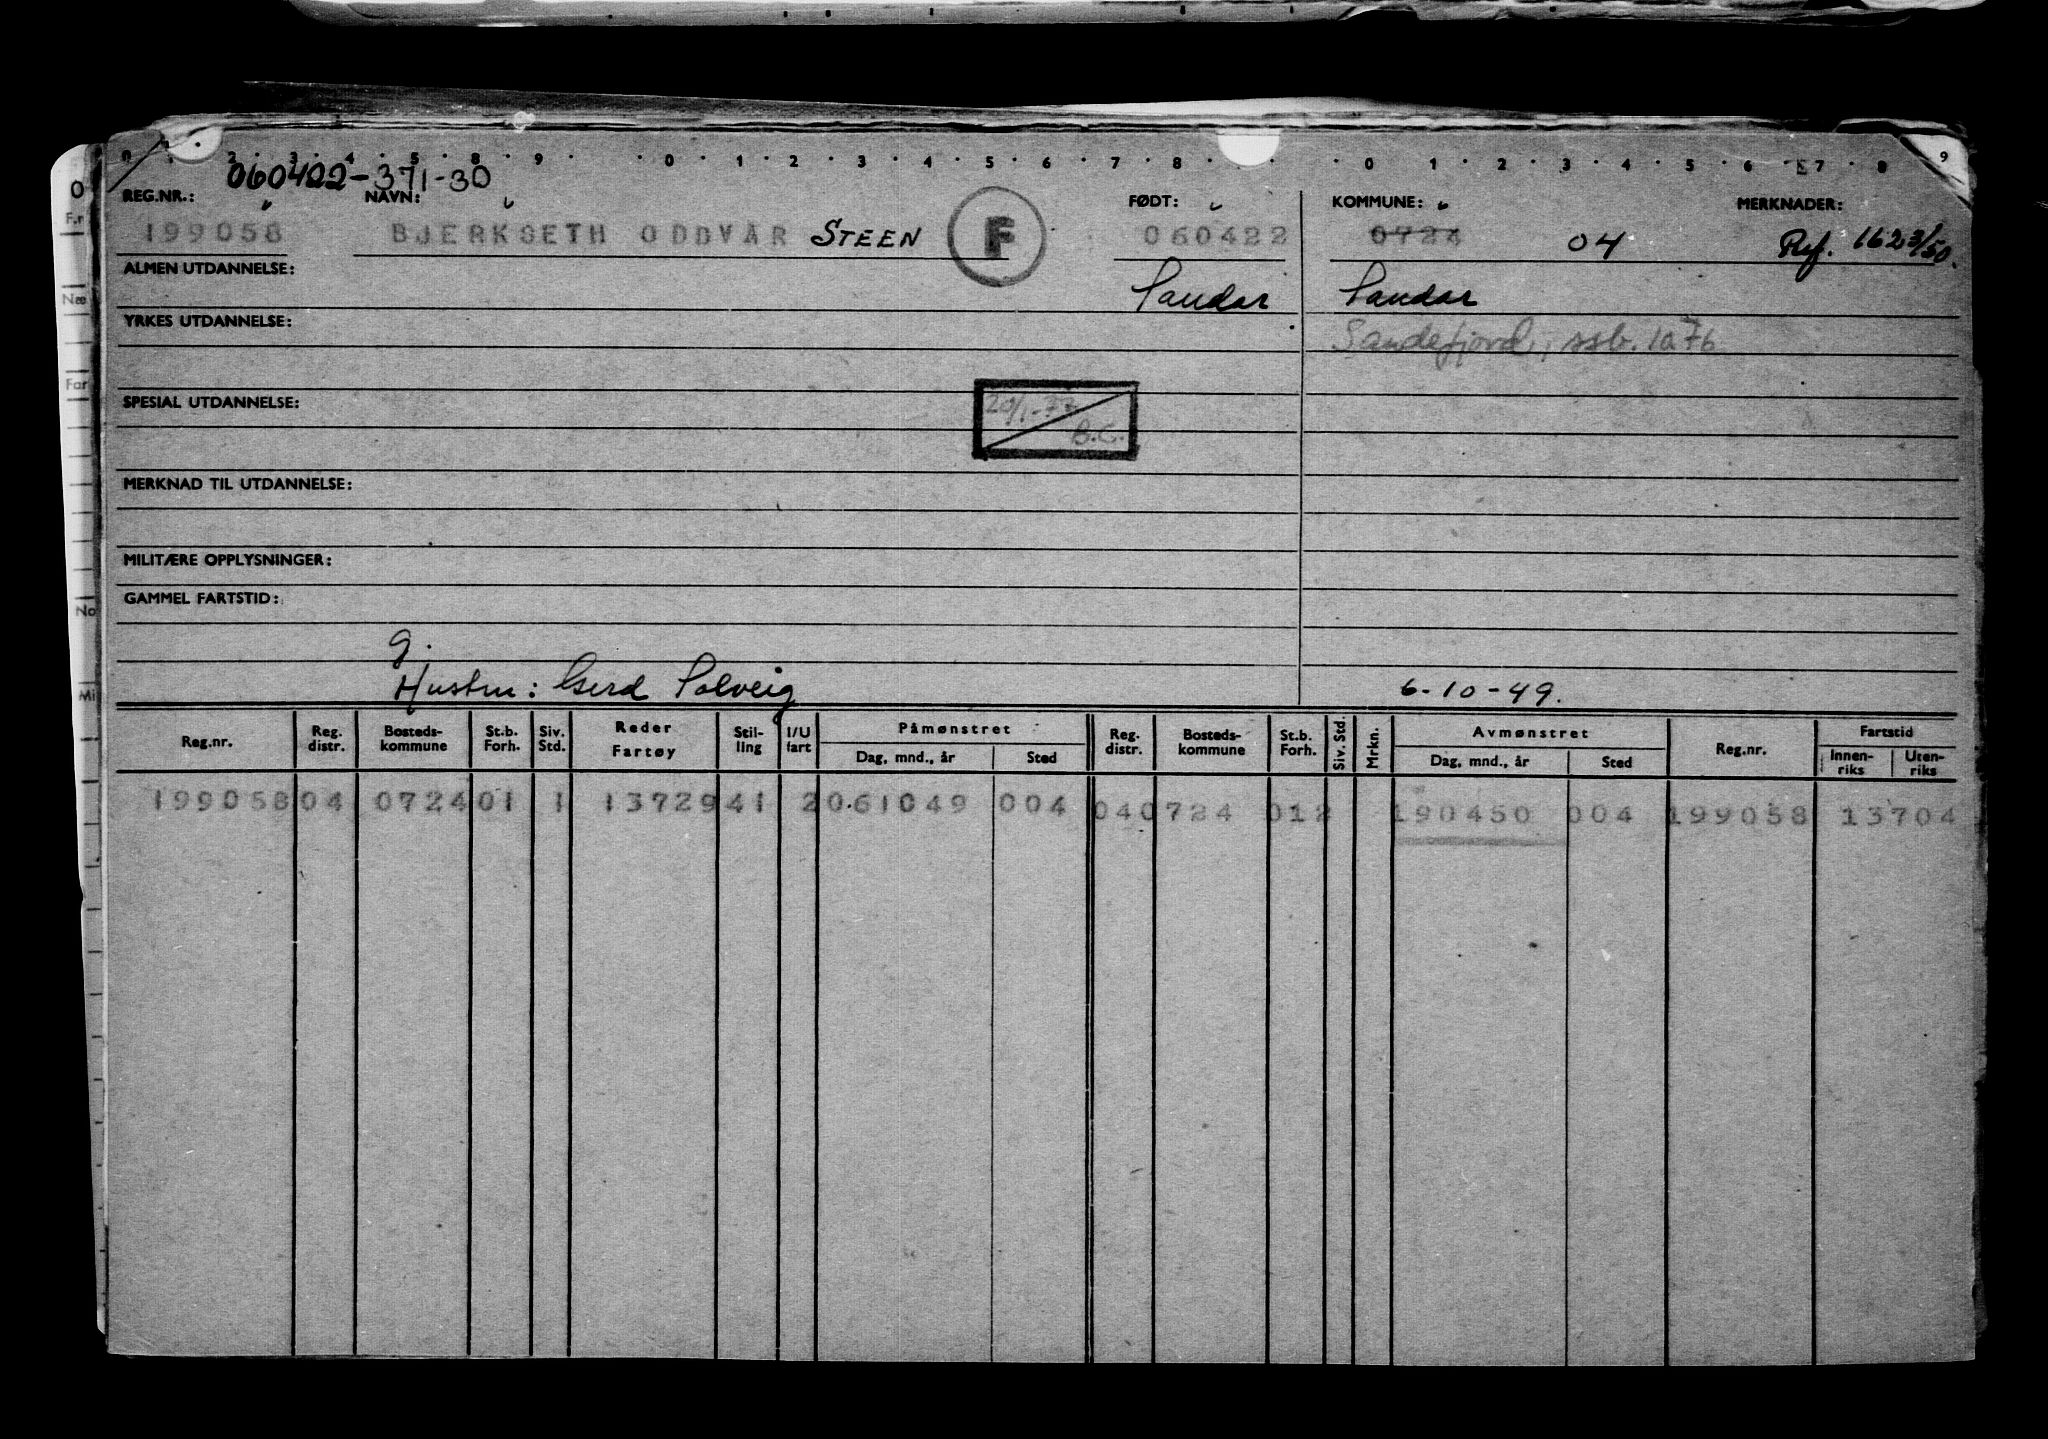 0 1 2 3 4 5 8 9 0 1 2 3 4 5 6 7 8 0 1 2 3 4 5 6 7 8 9
060422-371-30
REG.NR.: NAVN: FØDT: KOMMUNE: MERKNADER:
199058 BJERKSETH ODDVAR STEEN F 060422 0724 04 Ref. 1623/50.
ALMEN UTDANNELSE: Sandar Sandar
YRKES UTDANNELSE: Sandefjord, ssb. 1076
SPESIAL UTDANNELSE: 20/1-77 B.C.
MERKNAD TIL UTDANNELSE:
MILITÆRE OPPLYSNINGER:
GAMMEL FARTSTID:
g.
Hustru: Gerd Solveig 6-10-49.
Reg.nr. Reg. distr. Bosteds-kommune St.b. Forh. Siv. Std. Reder Fartøy Stil-ling I/U fart Påmønstret Dag, mnd., år Sted Reg. distr. Bosteds-kommune St.b. Forh. Siv. Std. Mrkn. Avmønstret Dag, mnd., år Sted Reg.nr. Fartstid Innen-riks Uten-riks
199058 04 0724 01 1 13729 41 2 061049 004 04 0724 012 190450 004 199058 13704